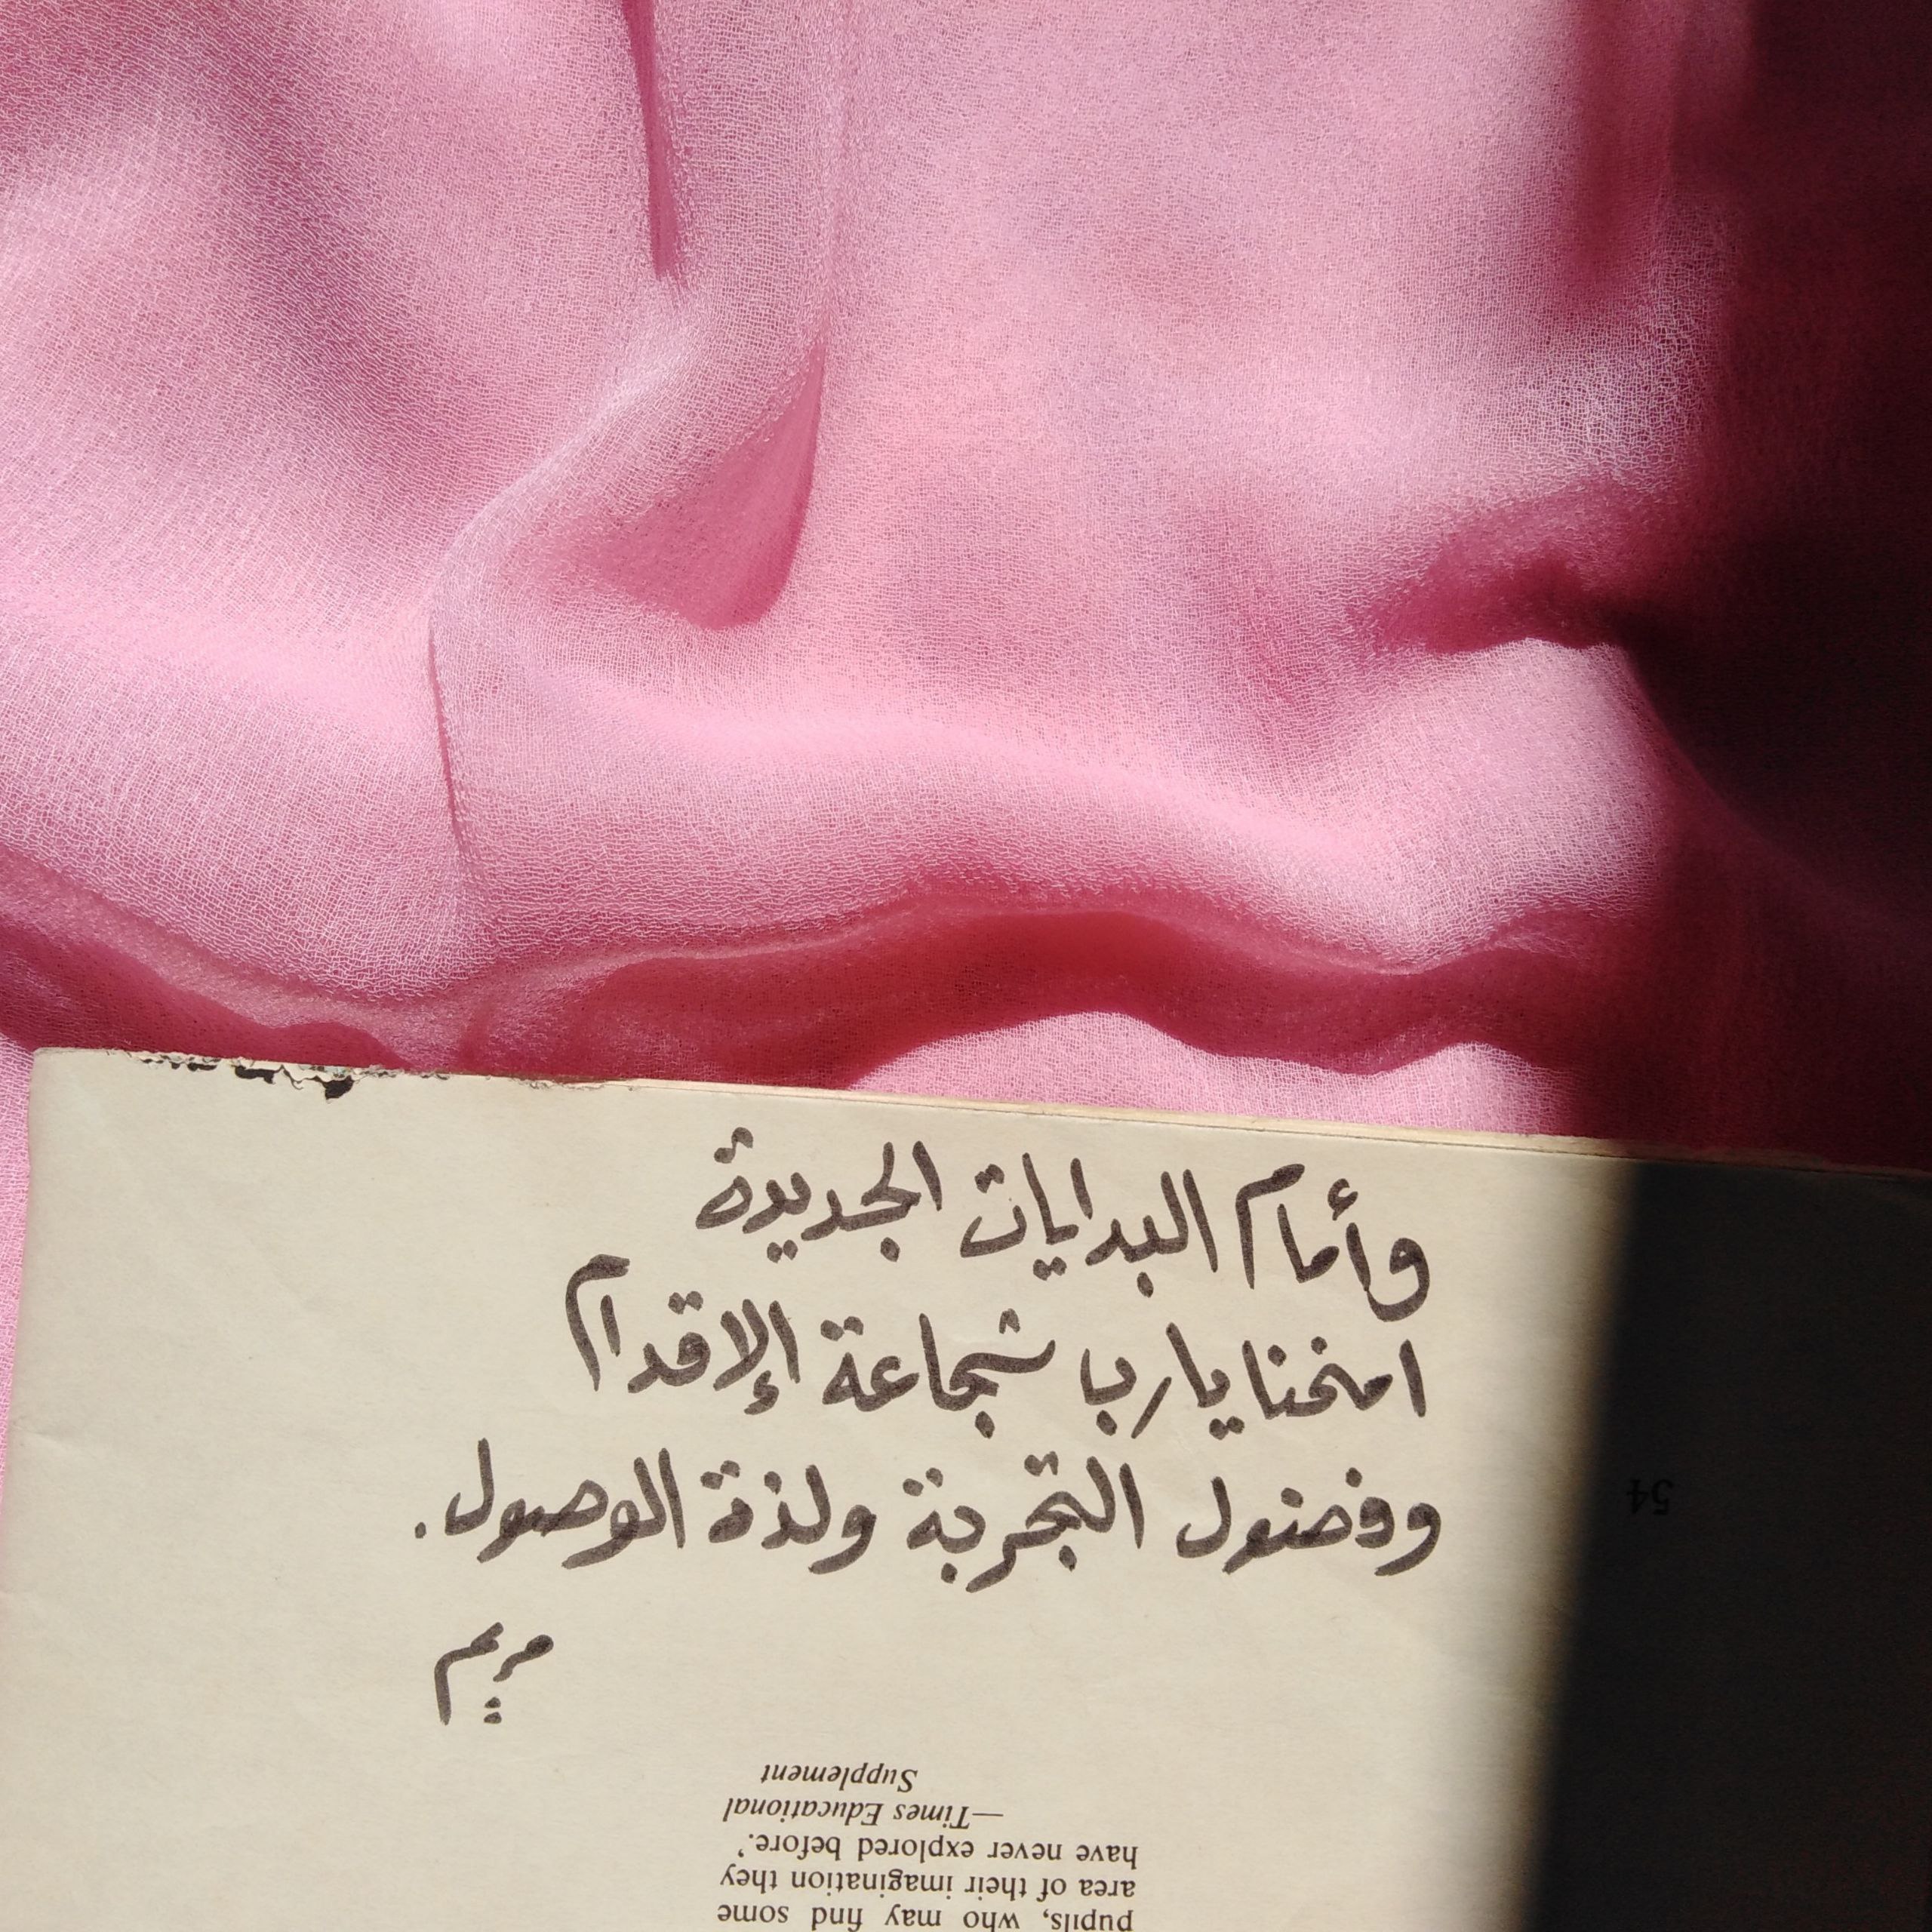 وأمام البدايات الجديدة
امنحنا يارب شجاعة الإقدام
وفضول التجربة ولذة الوصول.
مريم
54
pupils, who may find some
area of their imagination they
have never explored before.’
—Times Educational
Supplement